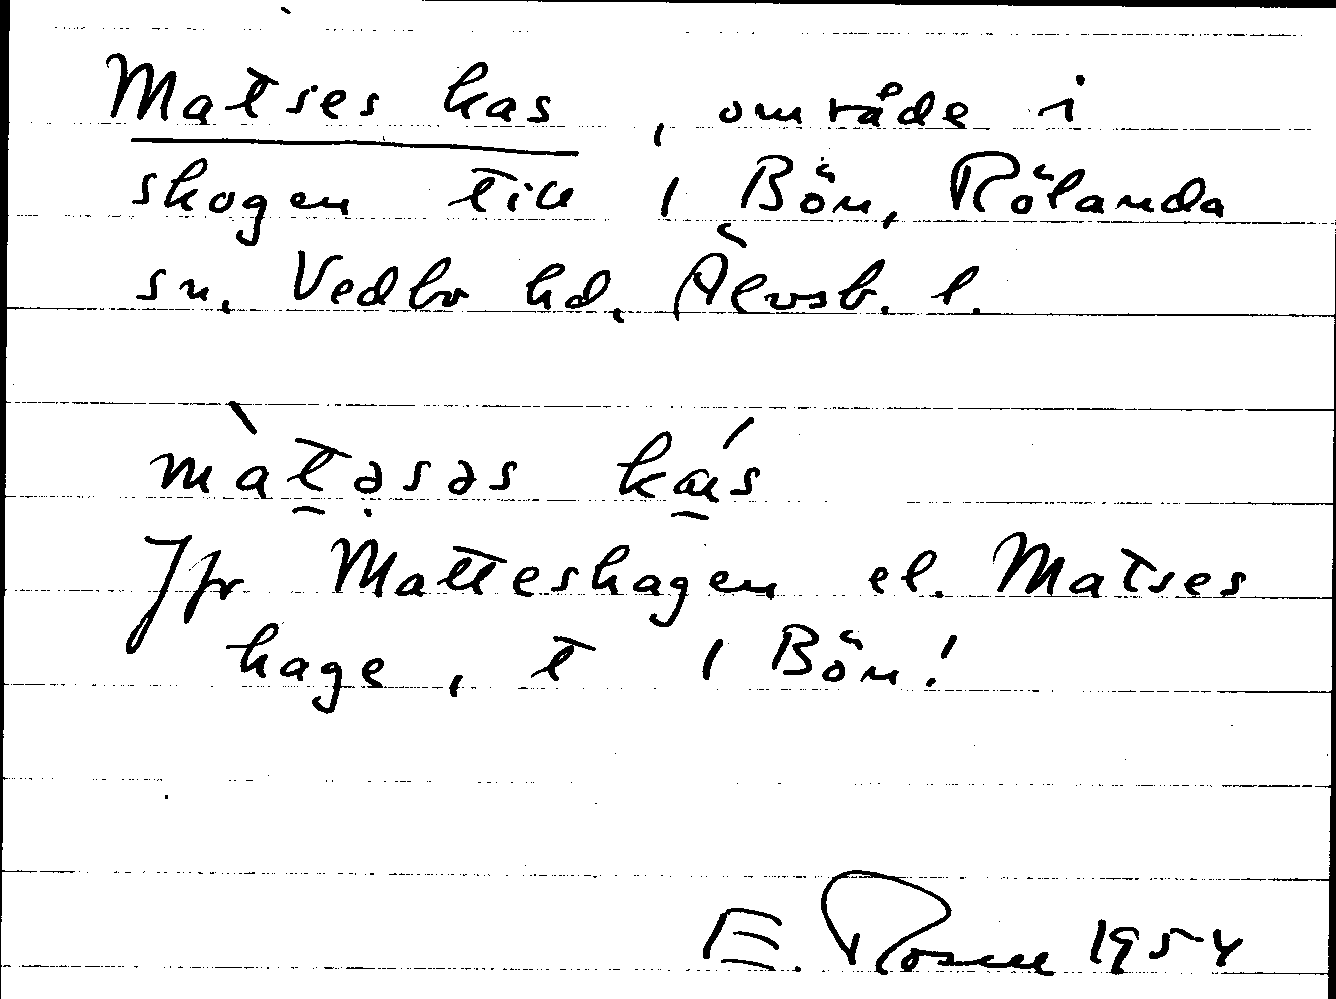 Matses kas, område i
skogen till 1 Bön, Rölanda
sn. Vedbo hd. Älvsb. l.
màt̰ə̣səs ká̰s
Jfr Matteshagen el. Matses
hage, t 1 Bön!
E. Rosen 1954